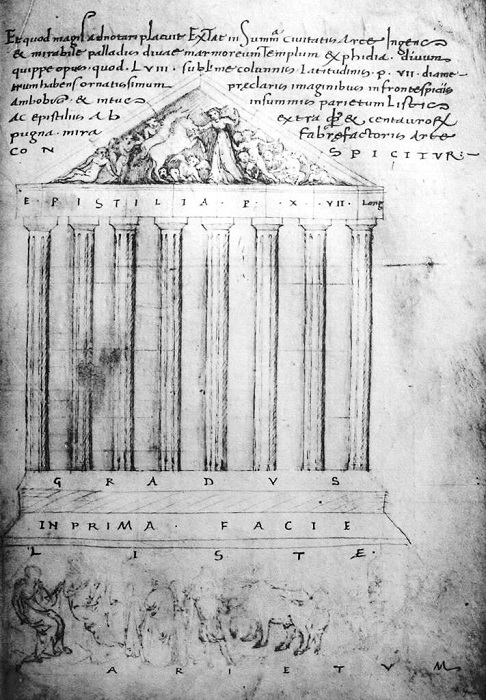 Et quod magis adnotari placuit Extat in Summa Civitatis Arce Ingens
& mirabile palladis divae marmoreum Templum ex phidia. divum
quippe opus. quod. LVIII. sublime columnis. Latitudinis. p. VII. diame-
trum habens ornatissimum preclaris imaginibus in frontespiciis
Ambobus. & intus insummis parietum Listris
ac epistilis Ab extra & centauror
pugna. mira Fabrefactoris Arte
CON SPICITVR:-
EPISTILIA. P. X. VII. Long
GRADVS
IN PRIMA. FACIE
LISTE.
ARIETVM